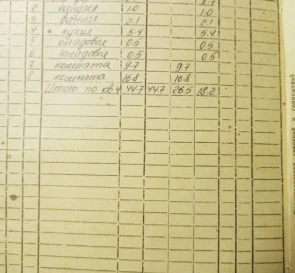 2 1.0 1.0
3 ванная 2.1 2.1
4 кухня 5.4 5.4
5 кладовая 0.5 0.5
6 кладовая 0.5 0.5
7 комната 9.7 9.7
8 комната 16.8 16.8
Итого по кв 4 44.7 44.7 26.5 18.2